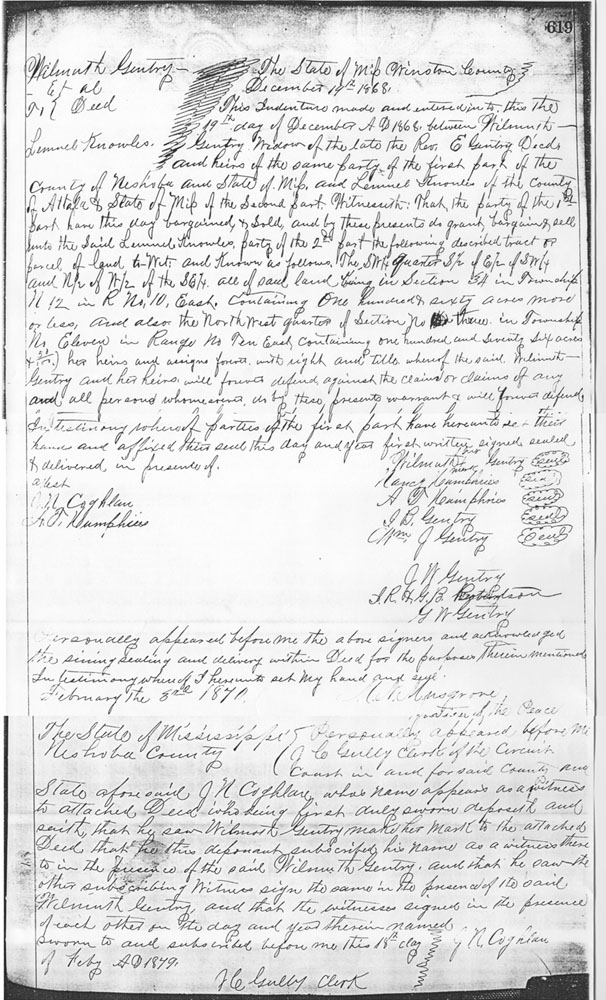 619
Wilmuth Gentry
Et al
To { Deed
Lemuel Knowles.
The State of Mip Winston County
December 19th 1868.
This Indenture made and entered into this the
19th day of December A D 1868 between Wilmuth
Gentry Widow of the late the Rev. E Gentry Decd
and heirs of the same party of the first part of the
County of Neshoba and State of Mip, and Lemuel Knowles of the County
of Attala & State of Mip of the Second part Witnesseth: That the party of the 1st
part have this day bargained, & sold, and by these presents do grant, bargain & sell
unto the said Lemuel Knowles, party of the 2nd part the following described tract or
parcel of land to-Wit: and Known as follows. The SW/4 quarter S/2 of E/2 of SW/4
and N/2 of W/2 of the SE/4. all of said land being in Section 34 in Township
N 12 in R No. 10, East, Containing One hundred & sixty acres more
or less, and also the North West quarter of Section No three in Township
No Eleven in Range No Ten East containing one hundred and seventy six acres
her heirs and assigns forever. with right and title whereof the said Wilmuth
Gentry and her heirs will forever defend against the claim or claims of any
and all persons whomsoever, do by these presents warrant & will forever defend
In testimony whereof parties of the first part have hereunto set their
hands and affixed their seal this day and year first written signed, sealed
& delivered in presence of.
attest
J N Coghlan
A. T. Humphries
Wilmuth her mark Gentry seal
Nancy Humphries seal
A T Humphries seal
J B. Gentry seal
Wm J Gentry seal
J W Gentry
S. R. & G. B.
G W Gentry
Personally appeared before me the above signers and acknowledged
the sining sealing and delivery within Deed for the purposes therein mentioned
In testimony whereof I hereunto set my hand and seal.
February the 3rd 1870.
Musgrove
Justice of the Peace
The State of Mississippi } Personally appeared before me
Neshoba County { J C Gully Clerk of the Circuit
Court in and for said County and
State aforesaid J N Coghlan, whose name appears as a witness
to attached Deed who being first duly sworn deposeth and
saith, that he saw Wilmoth Gentry make her mark to the attached
Deed that he this deponant subscribed his name as a witness there
to in the presence of the said Wilmuth Gentry. and that he saw the
other subscribing Witness sign the same in the presence of the said
Wilmuth Gentry and that the witnesses signed in the presence
of each other on the day and year therein named
Sworn to and subscribed before me this 18th day J N Coghlan
of Feby A D 1879.
J C Gully Clerk